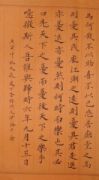 為何哉不以物喜不以己悲居廟堂之高
則憂其民處江湖之遠則憂其君是進
亦憂退亦憂然則何時而樂耶其必
曰先天下之憂而憂後天下之樂而樂乎
噫微斯人吾誰與歸時六年九月十五日